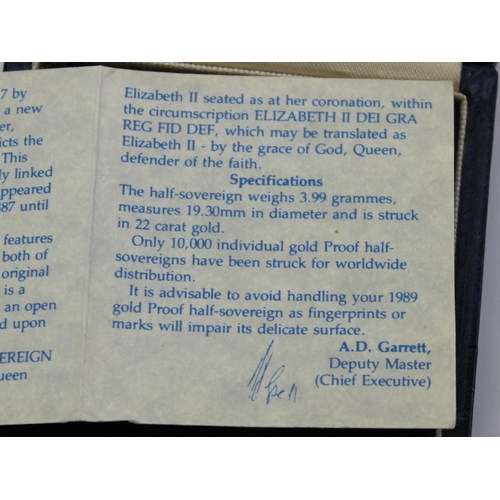 7 by
a new
er,
icts the
This
ly linked
appeared
487 until
features
both of
original
is a
an open
d upon
EREIGN
ueen
Elizabeth II seated as at her coronation, within
the circumscription ELIZABETH II DEI GRA
REG FID DEF, which may be translated as
Elizabeth II - by the grace of God, Queen,
defender of the faith.
Specifications
The half-sovereign weighs 3.99 grammes,
measures 19.30mm in diameter and is struck
in 22 carat gold.
Only 10,000 individual gold Proof half-
sovereigns have been struck for worldwide
distribution.
It is advisable to avoid handling your 1989
gold Proof half-sovereign as fingerprints or
marks will impair its delicate surface.
A.D. Garrett,
Deputy Master
(Chief Executive)